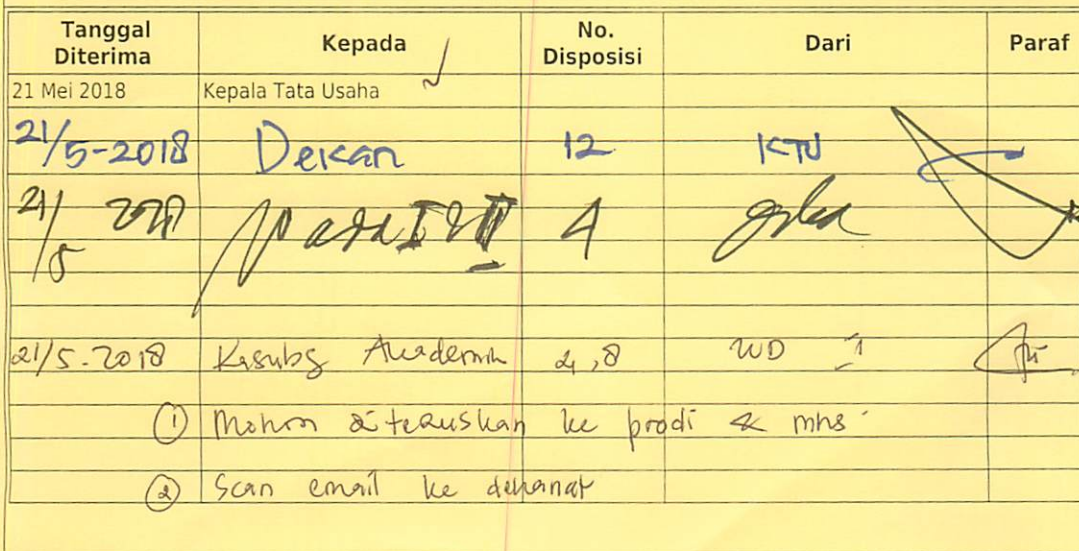 Tanggal Diterima Kepada No. Disposisi Dari Paraf
21 Mei 2018 Kepala Tata Usaha
21/5-2018 Dekan 12 KTU
21/5 4
21/5-2018 Kasubg Akademik 4,8 WD I
① Mohon diteruskan ke prodi & mhs
② Scan email ke dekanat